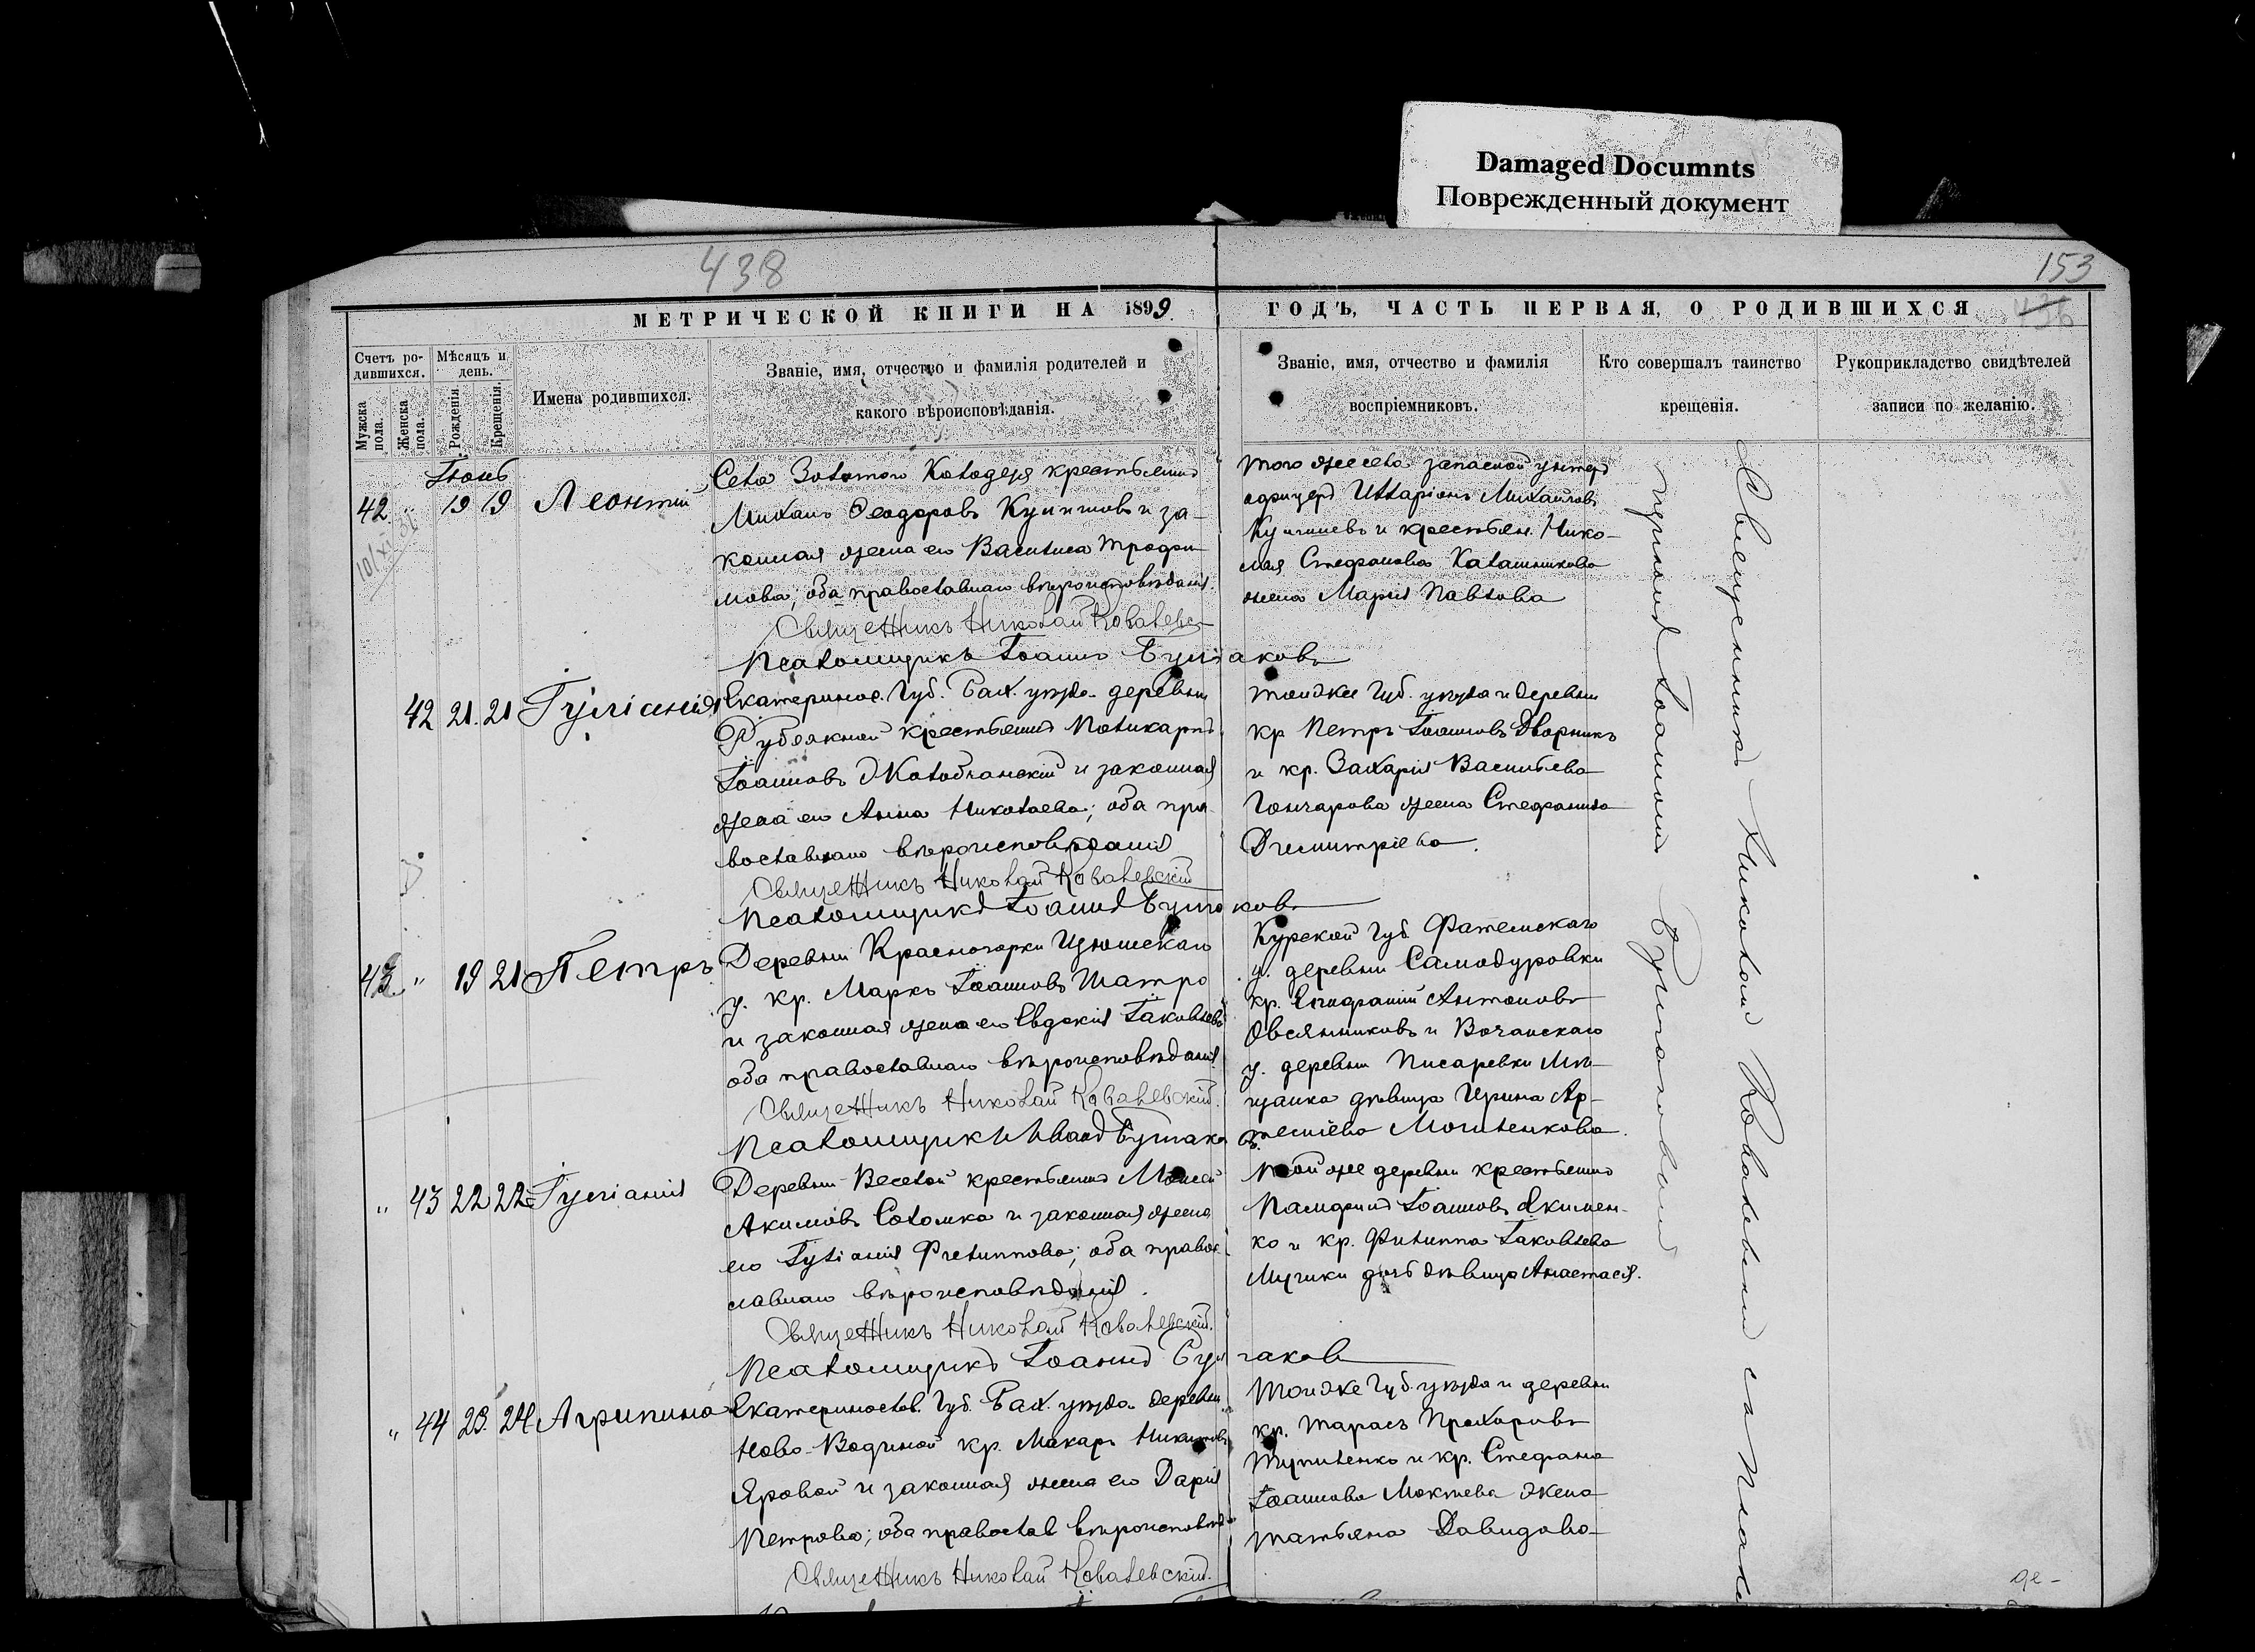 Damaged Documnts
Поврежденный документ
438
153
МЕТРИЧЕСКОЙ КНИГИ НА 1899
ГОДЪ, ЧАСТЬ ПЕРВАЯ, О РОДИВШИХСЯ
Счетъ ро-
дившихся.
Мужска
пола.
Женска
пола.
Мѣсяцъ и
день.
Рожденія.
Крещенія.
Имена родившихся.
Званіе, имя, отчество и фамилія родителей и
какого вѣроисповѣданія.
Званіе, имя, отчество и фамилія
воспріемниковъ.
Кто совершалъ таинство
крещенія.
Рукоприкладство свидѣтелей
записи по желанію.
Іюнь
42 " 19 19 Леонтій
Села Золотого Колодезя крестьянинъ
Михаилъ Ѳеодоровъ и за-
конная жена его Василиса Трофи
мова; оба православнаго вѣроисповѣданія.
Священникъ Николай Ковалевс
Псаломщикъ Іоаннъ
того же села запасной унтеръ
офицеръ Илларіонъ Михаиловъ
и крестьян. Нико-
лая Стефанова Калашникова
жена Марія Павлова
42 21. 21 Іуліанія
Екатеринос. Губ. Бах. уѣзда деревни
Рубежной крестьянинъ Поликарпъ
Іоанновъ и законная
жена его Анна Николаева; оба пра
вославнаго вѣроисповѣданія
Священникъ Николай Ковалевскій
Псаломщикъ Іоаннъ
тойже Губ. уѣзда и деревни
кр Петръ Іоанновъ Дворникъ
и кр. Захарія Васильева
Гончарова жена Стефанида
Димитріева.
43 " 19 21 Петръ
Деревни Красногорки Изюмскаго
у. кр. Маркъ Іоанновъ Шатро
и законная жена его Евдокія Іаковлева
оба православнаго вѣроисповѣданія.
Священникъ Николай Ковалевскій.
Псаломщикъ Иванъ
Курской Губ. Фатежскаго
у. деревни Самодуровки
кр. Епифаній Антоновъ
Овсянниковъ и Волчанскаго
у. деревни Писаревки Мѣ-
щанка дѣвица Ирина Ар-
теміева
" 43 22 22 Іуліанія
Деревни Веселой крестьянинъ Моисей
Акимовъ Соломка и законная жена
его Іуліанія Филиппова; оба право
славнаго вѣроисповѣданія.
Священникъ Николай Ковалевскій.
Псаломщикъ Іоаннъ
той же деревни крестьянинъ
Памфилъ Іоанновъ Якимен-
ко и кр. Филиппа Іаковлева
дочь дѣвица Анастасія.
" 44 23. 24 Агрипина
Екатеринослав. Губ. Бах. уѣзда деревни
Ново-Водяной кр. Макаръ Никитовъ
Яровой и законная жена его Дарія
Петрова; оба православ вѣроисповѣд
Священникъ Николай Ковалевскій.
Тойже Губ. уѣзда и деревни
кр. Тарасъ Прохоровъ
и кр. Стефана
Іоаннова жена
Татьяна Давидова
Священникъ Николай Ковалевскій съ Псалом
щикомъ Іоанномъ
де-